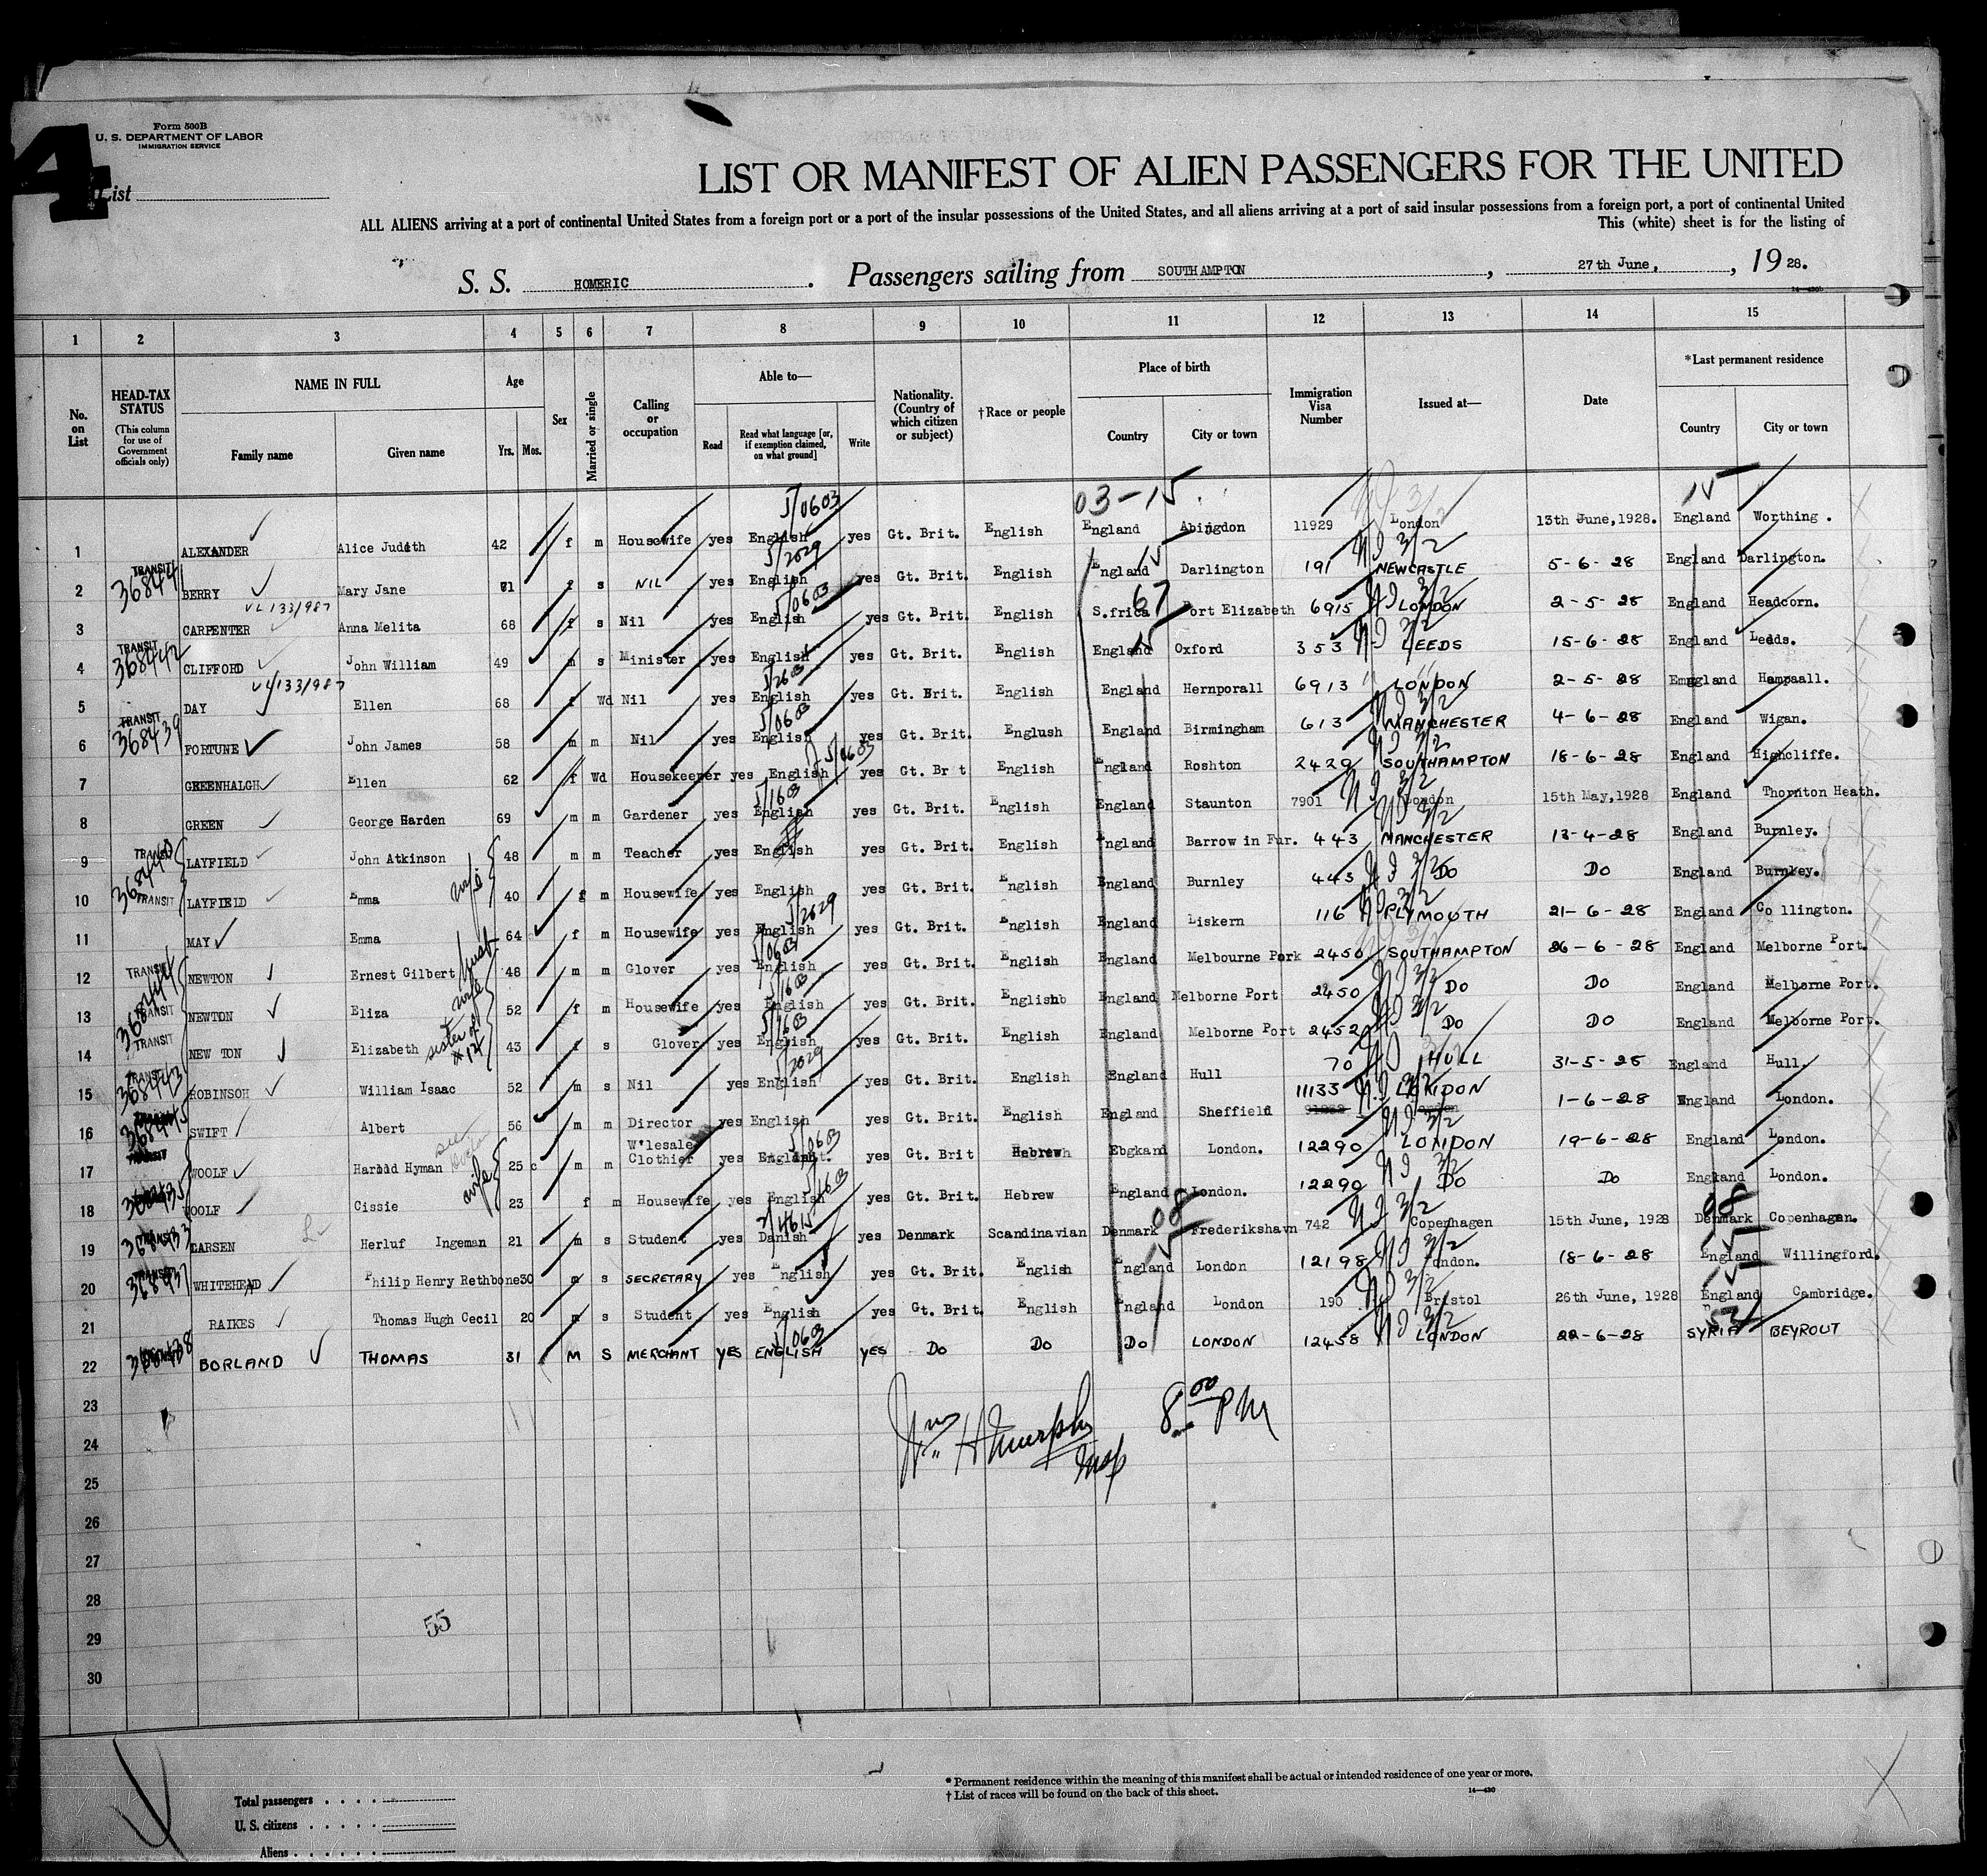 4
Form 500B
U. S. DEPARTMENT OF LABOR
IMMIGRATION SERVICE
List
LIST OR MANIFEST OF ALIEN PASSENGERS FOR THE UNITED
ALL ALIENS arriving at a port of continental United States from a foreign port or a port of the insular possessions of the United States, and all aliens arriving at a port of said insular possessions from a foreign port, a port of continental United
This (white) sheet is for the listing of
S. S. HOMERIC. Passengers sailing from SOUTHAMPTON, 27th June, , 1928.
1 2 3 4 5 6 7 8 9 10 11 12 13 14 15
No. on List
HEAD-TAX STATUS (This column for use of Government officials only)
NAME IN FULL Family name Given name
Age Yrs. Mos.
Sex
Married or single
Calling or occupation
Able to— Read Read what language [or, if exemption claimed, on what ground] Write
Nationality. (Country of which citizen or subject)
†Race or people
Place of birth Country City or town
Immigration Visa Number
Issued at—
Date
*Last permanent residence Country City or town
03-15
1 ALEXANDER Alice Judith 42 f m Housewife yes English yes Gt. Brit. English England Abingdon 11929 London 13th June,1928. England Worthing .
2 TRANSIT 368441 BERRY Mary Jane 61 f s NIL yes English yes Gt. Brit. English England Darlington 191 NEWCASTLE 5-6-28 England Darlington.
3 CARPENTER VL133/987 Anna Melita 68 f s Nil yes English yes Gt. Brit. English S.frica Port Elizabeth 6915 LONDON 2-5-28 England Headcorn.
4 TRANSIT 368442 CLIFFORD John William 49 m s Minister yes English yes Gt. Brit. English England Oxford 353 LEEDS 15-6-28 England Leeds.
5 DAY VL133/987 Ellen 68 f Wd Nil yes English yes Gt. Brit. English England Hernporall 6913 LONDON 2-5-28 England Hampaall.
6 TRANSIT 368439 FORTUNE John James 58 m m Nil yes English yes Gt. Brit. Englush England Birmingham 613 MANCHESTER 4-6-28 England Wigan.
7 GREENHALGH Ellen 62 f Wd Housekeeper yes English yes Gt. Br t English England Roshton 2429 SOUTHAMPTON 18-6-28 England Highcliffe.
8 GREEN George Harden 69 m m Gardener yes English yes Gt. Brit. English England Staunton 7901 London 15th May,1928 England Thornton Heath.
9 TRANSIT LAYFIELD John Atkinson 48 m m Teacher yes English yes Gt. Brit. English England Barrow in Fur. 443 MANCHESTER 13-4-28 England Burnley.
10 368440 TRANSIT LAYFIELD Emma wife 40 f m Housewife yes English yes Gt. Brit. English England Burnley 443 Do Do England Burnley.
11 MAY Emma 64 f m Housewife yes English yes Gt. Brit. English England Liskern 116 PLYMOUTH 21-6-28 England Co llington.
12 TRANSIT NEWTON Ernest Gilbert husb 48 m m Glover yes English yes Gt. Brit. English England Melbourne Pork 2450 SOUTHAMPTON 26-6-28 England Melborne Port.
13 368444 TRANSIT NEWTON Eliza wife 52 f m Housewife yes English yes Gt. Brit. Englishb England Melborne Port 2450 Do Do England Melborne Port.
14 TRANSIT NEW TON Elizabeth sister of #12 43 f s Glover yes English yes Gt. Brit. English England Melborne Port 2452 Do Do England Melborne Port.
15 TRANSIT 368443 ROBINSON William Isaac 52 m s Nil yes English yes Gt. Brit. English England Hull 70 HULL 31-5-28 England Hull.
16 SWIFT Albert 56 m m Director yes English yes Gt. Brit. English England Sheffield 11133 LONDON 1-6-28 England London.
17 WOOLF Harold Hyman 25 m m W'lesale Clothier yes English yes Gt. Brit Hebrew Ebgkand London. 12290 LONDON 19-6-28 England London.
18 WOOLF Cissie wife 23 f m Housewife yes English yes Gt. Brit. Hebrew England London. 12290 Do Do England London.
19 TRANSIT 368433 LARSEN Herluf Ingeman 21 m s Student yes Danish yes Denmark Scandinavian Denmark Frederikshavn 742 Copenhagen 15th June, 1928 Denmark Copenhagen.
20 TRANSIT 368437 WHITEHEAD Philip Henry Rethbone 30 m s SECRETARY yes English yes Gt. Brit. English England London 12198 London. 18-6-28 England Willingford.
21 RAIKES Thomas Hugh Cecil 20 m s Student yes English yes Gt. Brit. English England London 190 Bristol 26th June, 1928 England Cambridge.
22 BORLAND THOMAS 31 M S MERCHANT YES ENGLISH YES Do Do Do LONDON 12458 LONDON 22-6-28 SYRIA BEYROUT
23
Wm H Murphy Insp 8 00 PM
24
25
26
27
28
29
30
55
Total passengers
U. S. citizens
Aliens
* Permanent residence within the meaning of this manifest shall be actual or intended residence of one year or more.
† List of races will be found on the back of this sheet.
14—430